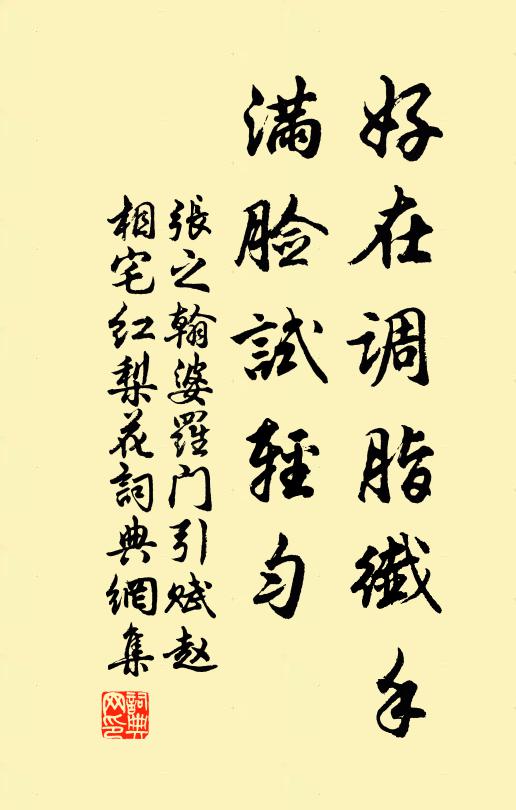 好在调脂纖手
满脸試輕匀
張之翰婆羅门引赋赵
相宅红梨花詞典網集
詞典网印